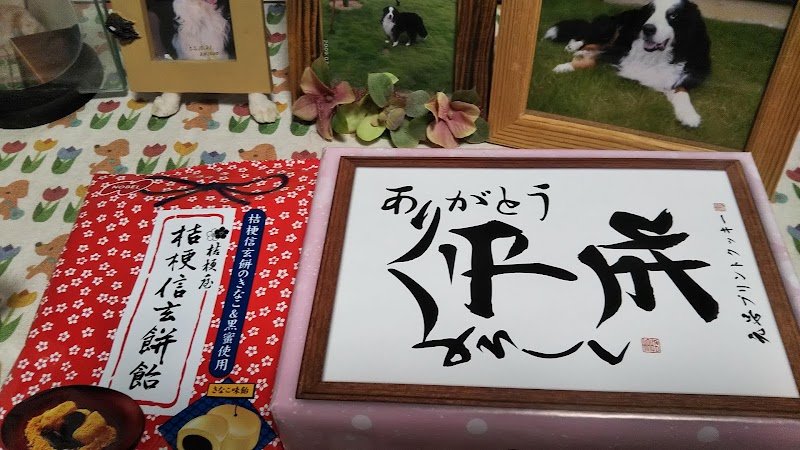 NOBEL
桔梗信玄餅のきなこ&黒蜜使用
桔梗屋
桔梗信玄餅飴
きなこ味飴
ありがとう
平成
元号プリントクッキー